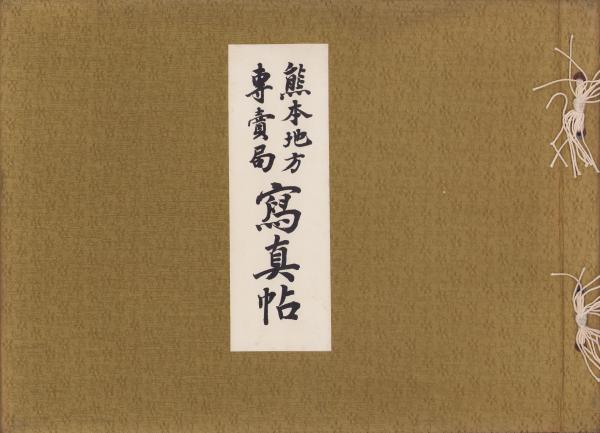 熊本地方
專賣局
寫真帖